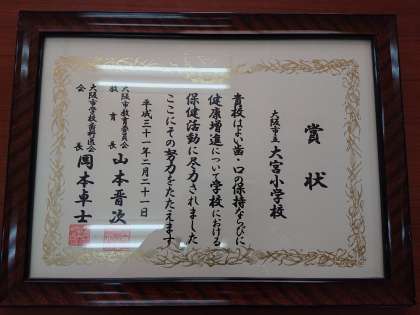 賞状
大阪市立 大宮小学校
貴校はよい歯・口の保持ならびに
健康増進について学校における
保健活動に尽力されました
ここにその努力をたたえます
平成三十一年二月二十一日
大阪市教育委員会
教育長 山本晋次
大阪市学校歯科医会
会長 岡本卓士